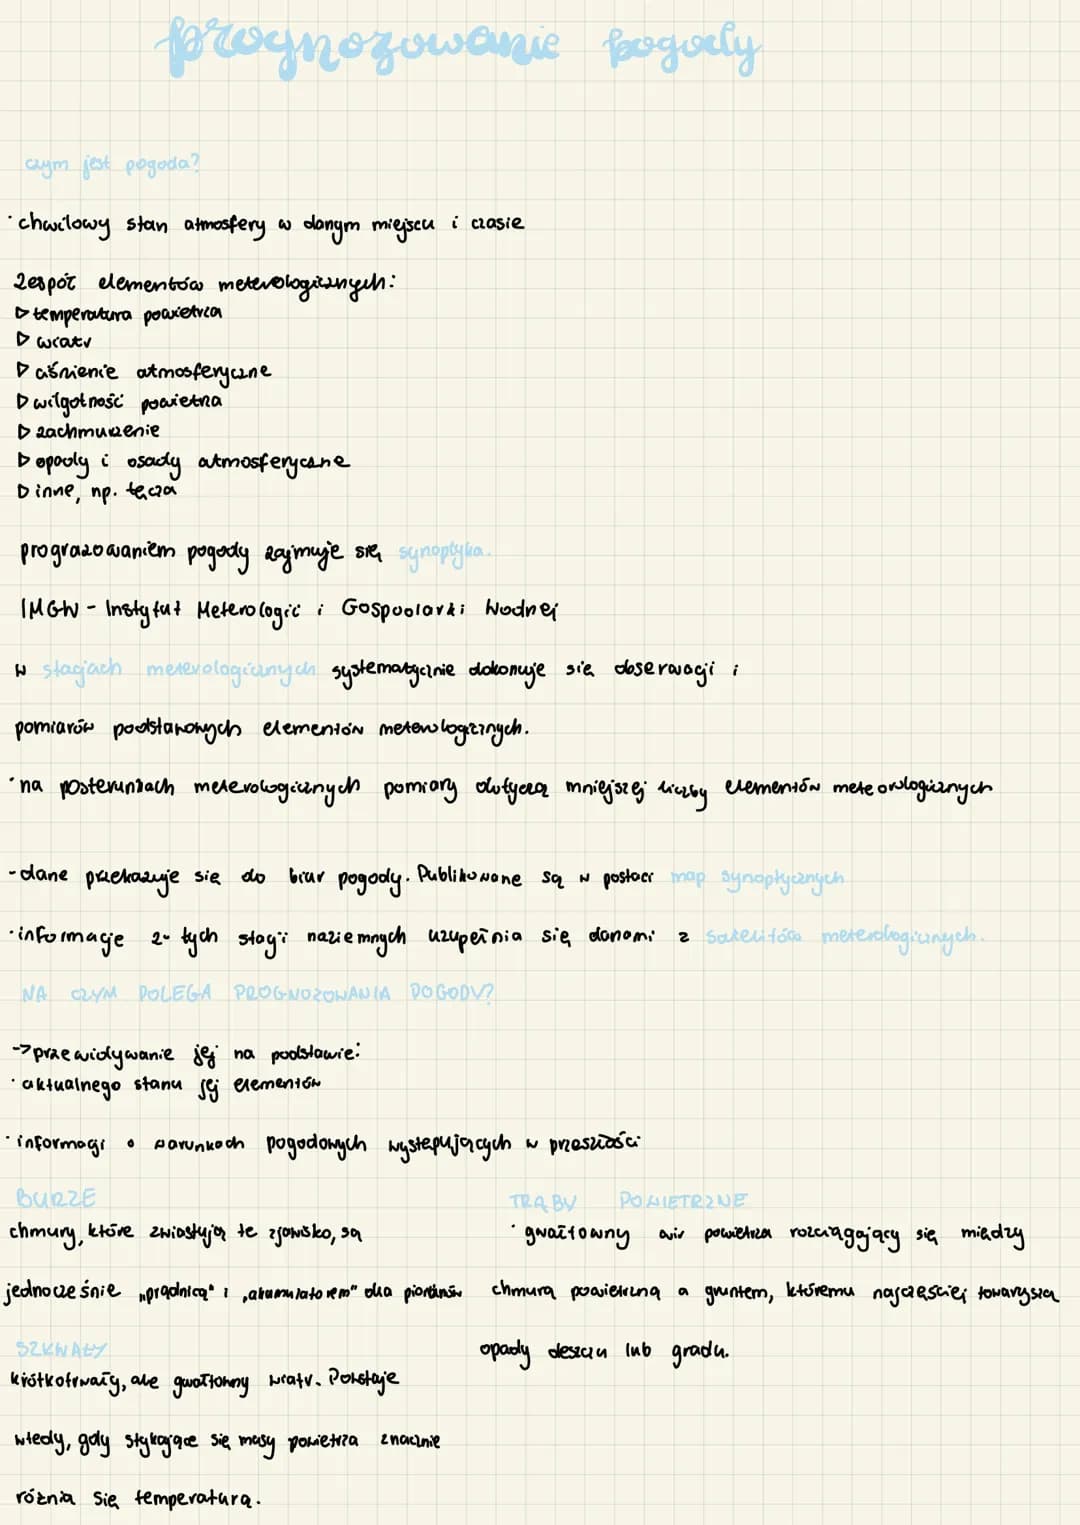 prognozowanie pogody
czym jest pogoda?
· chwilowy stan atmosfery w danym miejscu i czasie
Zespół elementów meterologicznych:
▷ temperatura powietrza
▷ wiatr
▷ ciśnienie atmosferyczne
▷ wilgotność powietrza
▷ zachmurzenie
▷ opady i osady atmosferyczne
▷ inne, np. tęcza
prognozowaniem pogody zajmuje się synoptyka.
IMGW - Instytut Meterologii i Gospodarki Wodnej
w stacjach meterologicznych systematycznie dokonuje się obserwacji i
pomiarów podstawowych elementów meterologicznych.
· na posterunkach meterologicznych pomiary dotyczą mniejszej liczby elementów meteorologicznych
- dane przekazuje się do biur pogody. Publikowane są w postaci map synoptycznych
· informacje z tych stacji naziemnych uzupełnia się danami z satelitów meterologicznych.
NA CZYM POLEGA PROGNOZOWANIA POGODY?
-> przewidywanie jej na podstawie:
· aktualnego stanu jej elementów
· informacji o warunkach pogodowych występujących w przeszłości
BURZE
chmury, które zwiastują te zjawisko, są
jednocześnie „prądnicą" i „akumulatorem" dla piorunów
SZKWAŁY
krótkotrwały, ale gwałtowny wiatr. Powstaje
wtedy, gdy stykające się masy powietrza znacznie
różnią się temperaturą.
TRĄBY POWIETRZNE
· gwałtowny wir powietrza rozciągający się między
chmurą powietrzną a gruntem, któremu najczęściej towarzyszą
opady deszczu lub gradu.